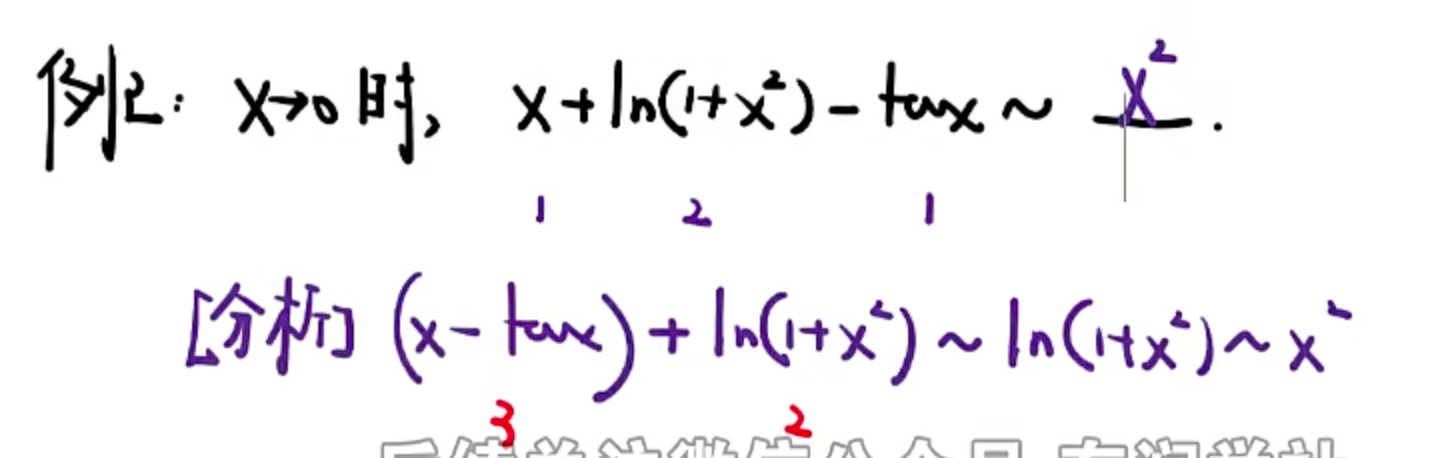 例2: x→0时, x+ln(1+x²)-tanx ~ x².
1 2 1
[分析] (x-tanx)+ln(1+x²) ~ ln(1+x²) ~ x²
3 2